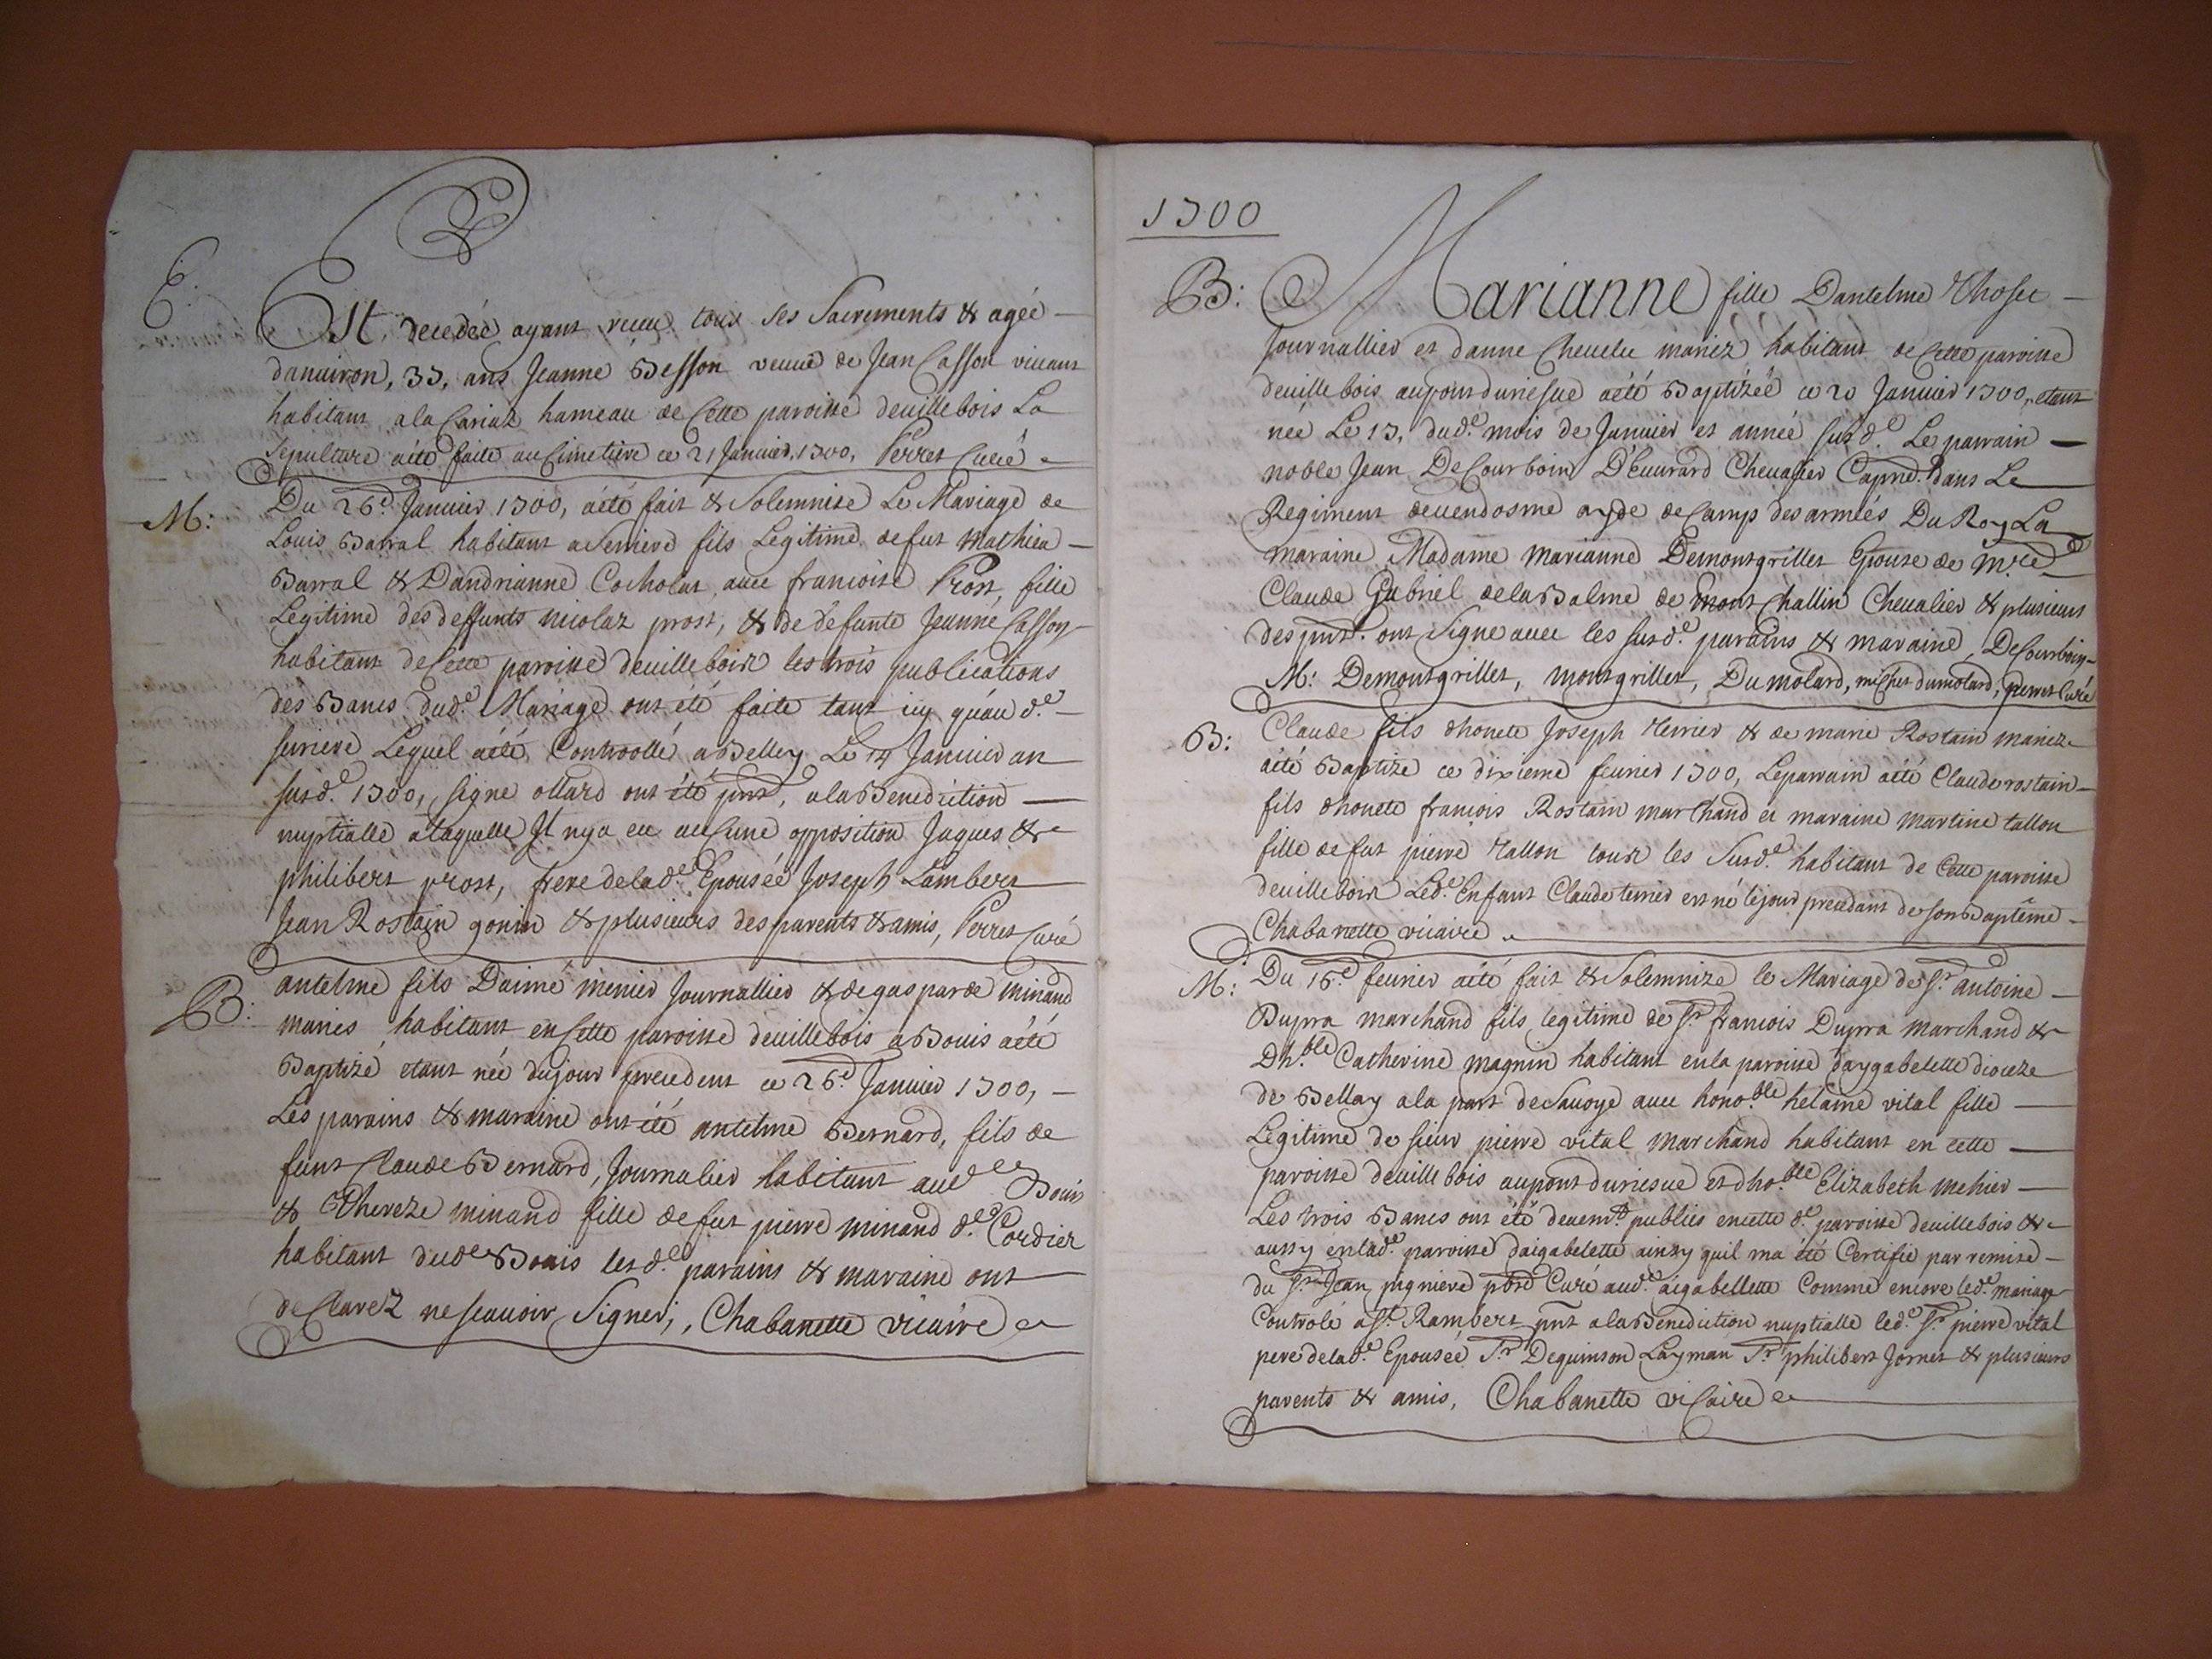 E:
Est decedée ayant receu tous ses Sacrements & agée
danuiron, 77, ans Jeanne Besson veuue de Jean Casson viuant
habitant ala Cariaz hameau de Cette paroisse deuillebois La
Sepulture aété faite au Cimetiere ce 21 Januier, 1700, Perret Curé
M:
Du 26.e Januier 1700, aété fait & Solemnise Le Mariage de
Louis Barral habitant a Serriere fils Legitime defut Mathieu
Barral & Dandrianne Cocholat auec francoise Prost, fille
Legitime des deffunts nicolaz prost, & de defunte Jeanne Casson
habitant deCette paroisse deuilleboix les trois publications
des Bancs dud.e Mariage ont été faite tant icy quau d.e
seriere Lequel aété Controollé a Belley Le 14 Januier an
susd.e 1700, signe ollard ont été pnts, ala Benediction
nuptialle alaquelle Il nya eu auCune opposition Jaques &
philibert prost, frere delad.e Epousée Joseph Lambert
Jean Rostain gonin & plusieurs des parents & amis, Perret Curé
B:
antelme fils Daimé menier Journallier & de gasparde minand
mariés habitant en Cette paroisse deuillebois a Bouis aété
Baptizé etant née dujour precedent ce 26.e Januier 1700,
Les parains & maraine ont été antelme Bernard, fils de
feut Claude Bernard, Journalier habitant aud.e Bouis
& Thereze minand fille defut pierre minand d.e Cordier
habitant dud.e Bouis lesd.e parains & maraine ont
deClarez nescauoir Signer, Chabanette vicaire
1700
B:
Marianne fille Dantelme Thoset
Journallier et danne Cheuelu mariez habitant de Cette paroisse
deuille bois aupont duriesue aété Baptizée ce 20 Januier 1700, etant
née Le 17, dud.e mois de Januier et année susd.e Le parrain
noble Jean DeCourboin D'Euurard Cheuallier Capne dans Le
Regiment deuendosme ayde decamp des armées Du Roy La
maraine Madame Marianne Demontgrillet Epouse de m.re
Claude Gabriel dela Balme de mont Challin Cheualier & plusieurs
des pnts. ont Signe auec les susd.e parains & maraine, DeCourboin
M: Demontgrillet, montgrillet, Dumolard, michet dumolard, perret Curé
B:
Claude fils dhonete Joseph Terrier & de marie Rostain mariez
aété Baptize ce dixieme feurier 1700, Leparrain aété Claude rostain
fils dhonete francois Rostain marChand et maraine martine tallon
fille defut pierre tallon tous les Susd.e habitant de Cette paroisse
deuilleboix Led.e Enfant Claude terrier est né lejour precedant deson Baptême
Chabanette vicaire
M:
Du 16.e feurier aété fait & Solemnize le Mariage de Sr. antoine
Dupra marchand fils legitime de Sr. francois Dupra marchand &
Dh.ble Catherine magnin habitant enla paroisse daygabelette dioceze
de Bellay ala part de Sauoye auec hono.ble helaine vital fille
Legitime de sieur pierre vital marchand habitant en cette
paroisse deuille bois aupont duriesue et dho.ble Elizabeth mehier
Les trois Bancs ont été deuemt publies encette d.e paroisse deuillebois &
aussy enlad.e paroisse daigabelette ainsy quil ma été Certifie par remise
du Sr. Jean pigniere pbre Curé aud.e aigabellette Comme encore led.e mariage
Controlé a St. Rambert pnt ala Benediction nuptialle led.e Sr. pierre vital
pere delad.e Epousée, Sr. Dequinson Layman Sr. philibert Jornet & plusieurs
parents & amis, Chabanette viCaire